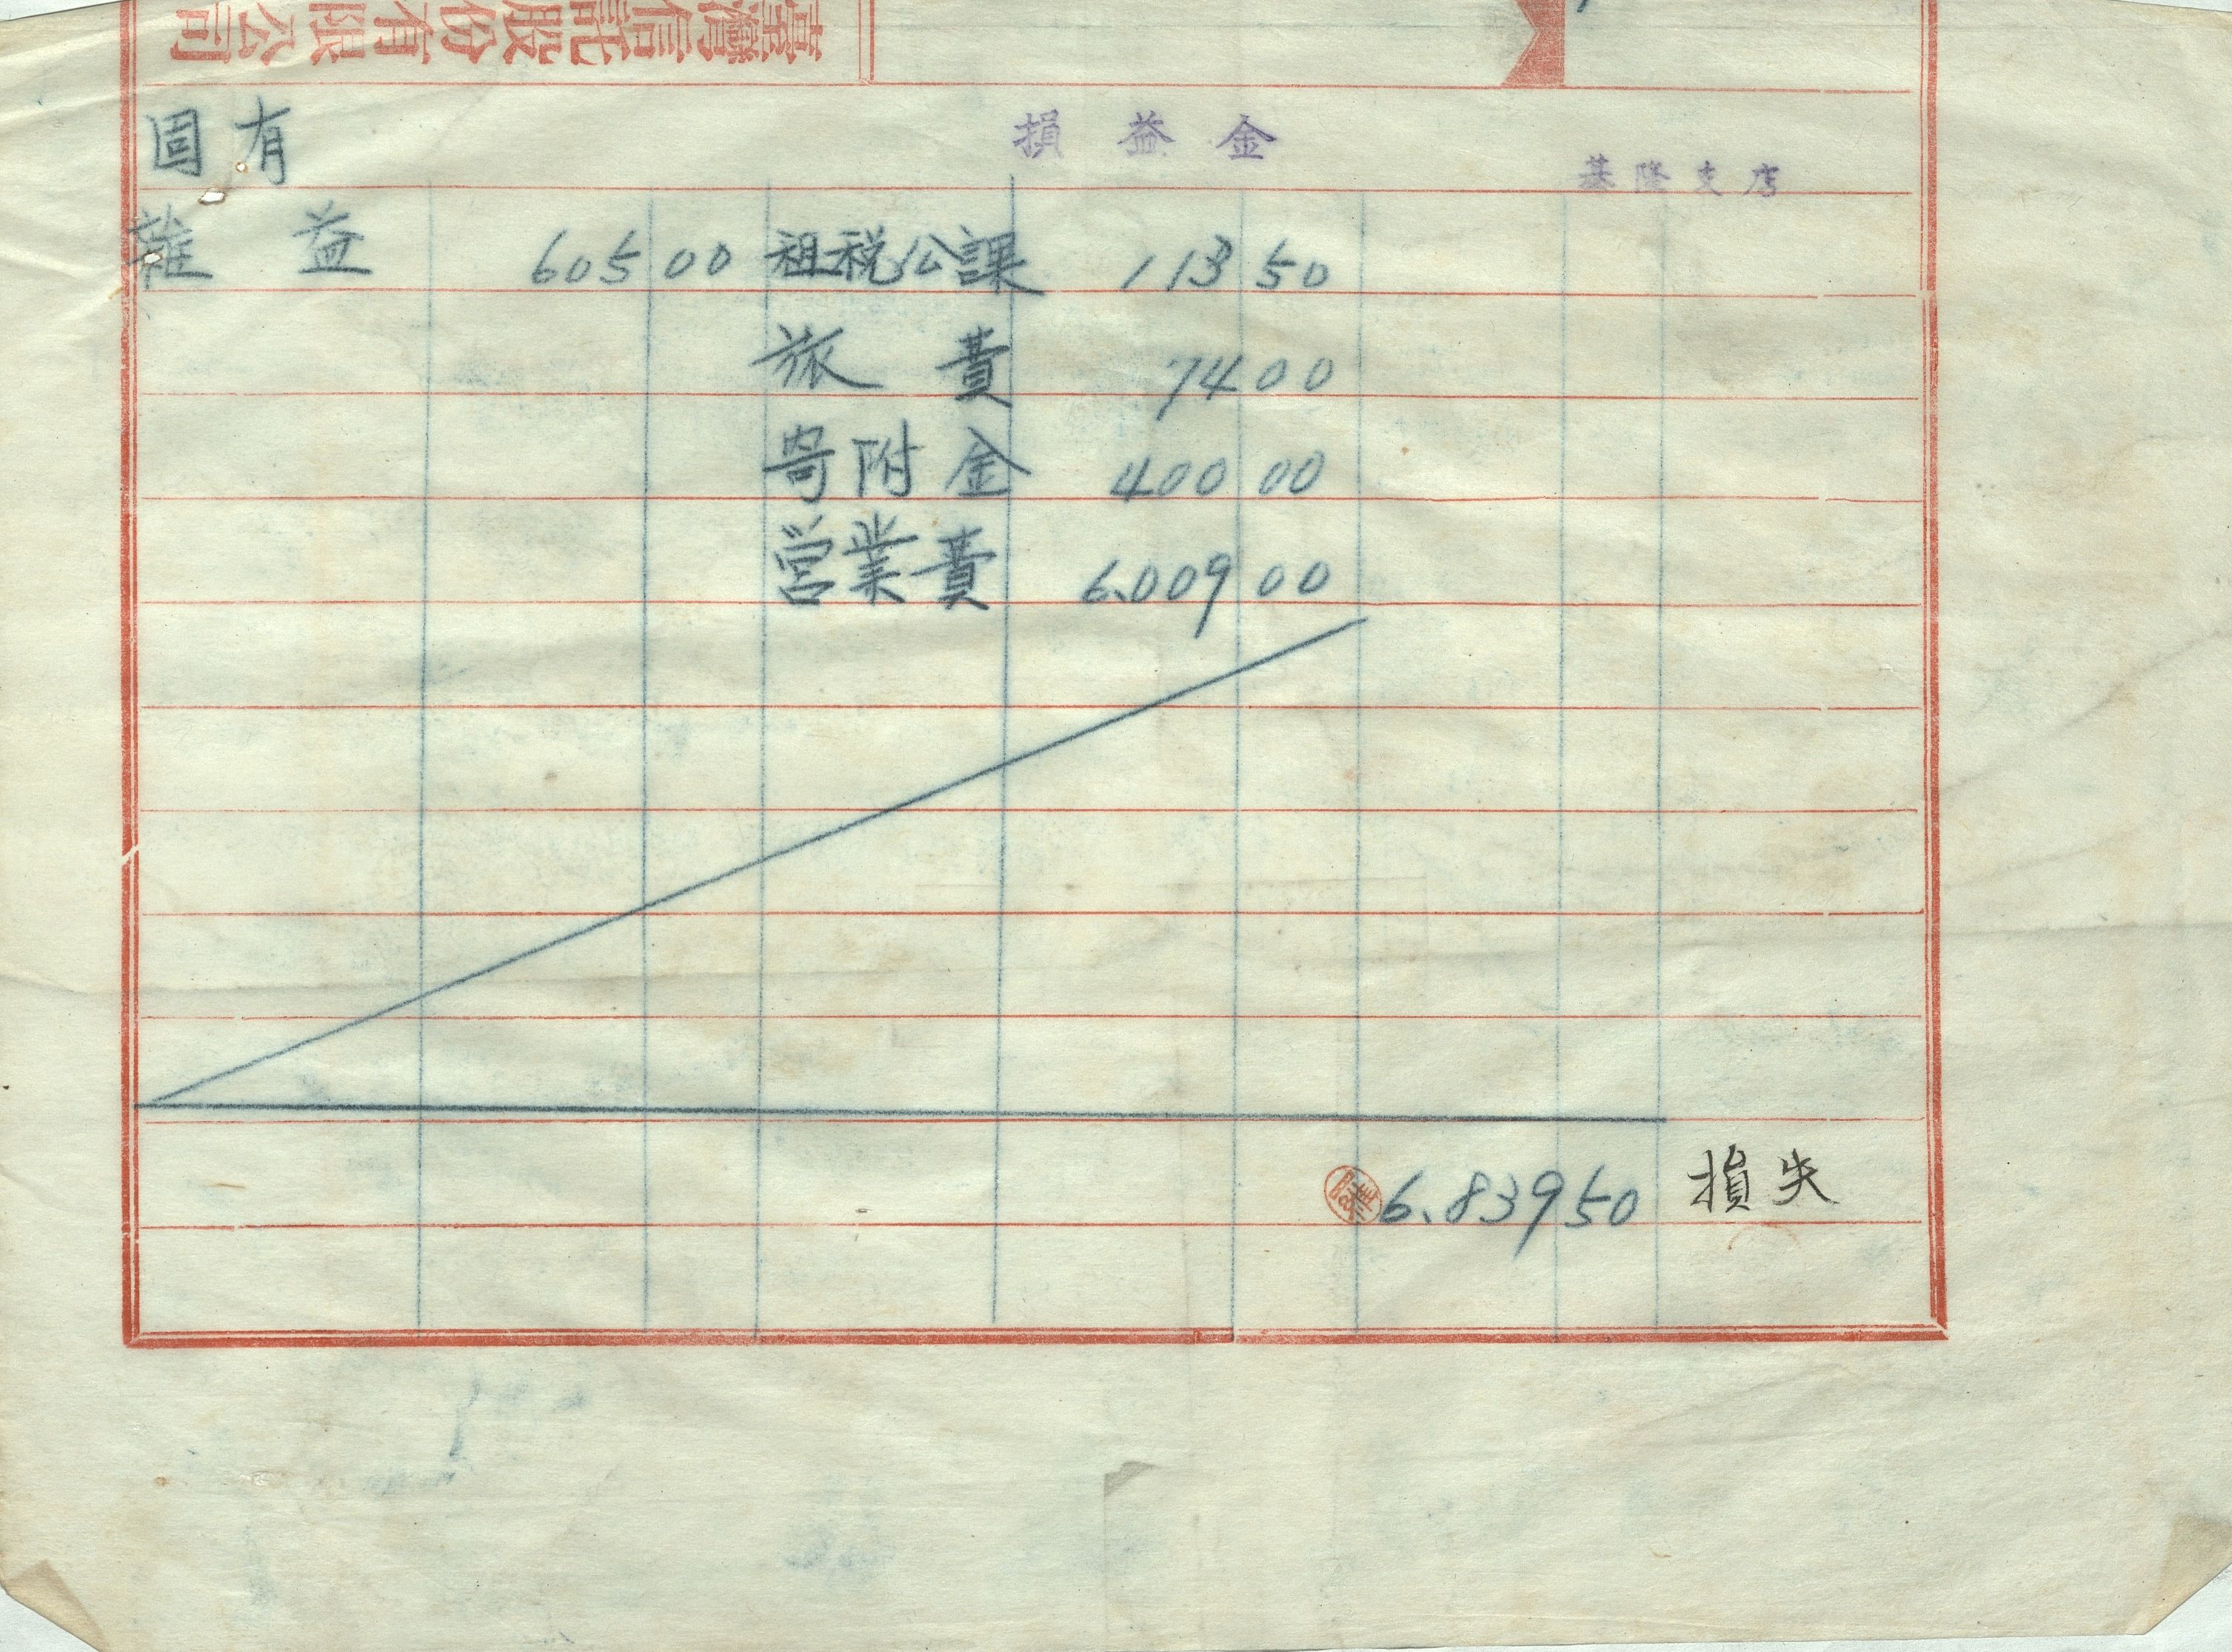 臺灣信託股份有限公司
固有 損益金 基隆支店
雜益 605 00 租税公課 113 50
旅費 74 00
寄附金 400 00
営業費 6.009 00
6.839 50 損失